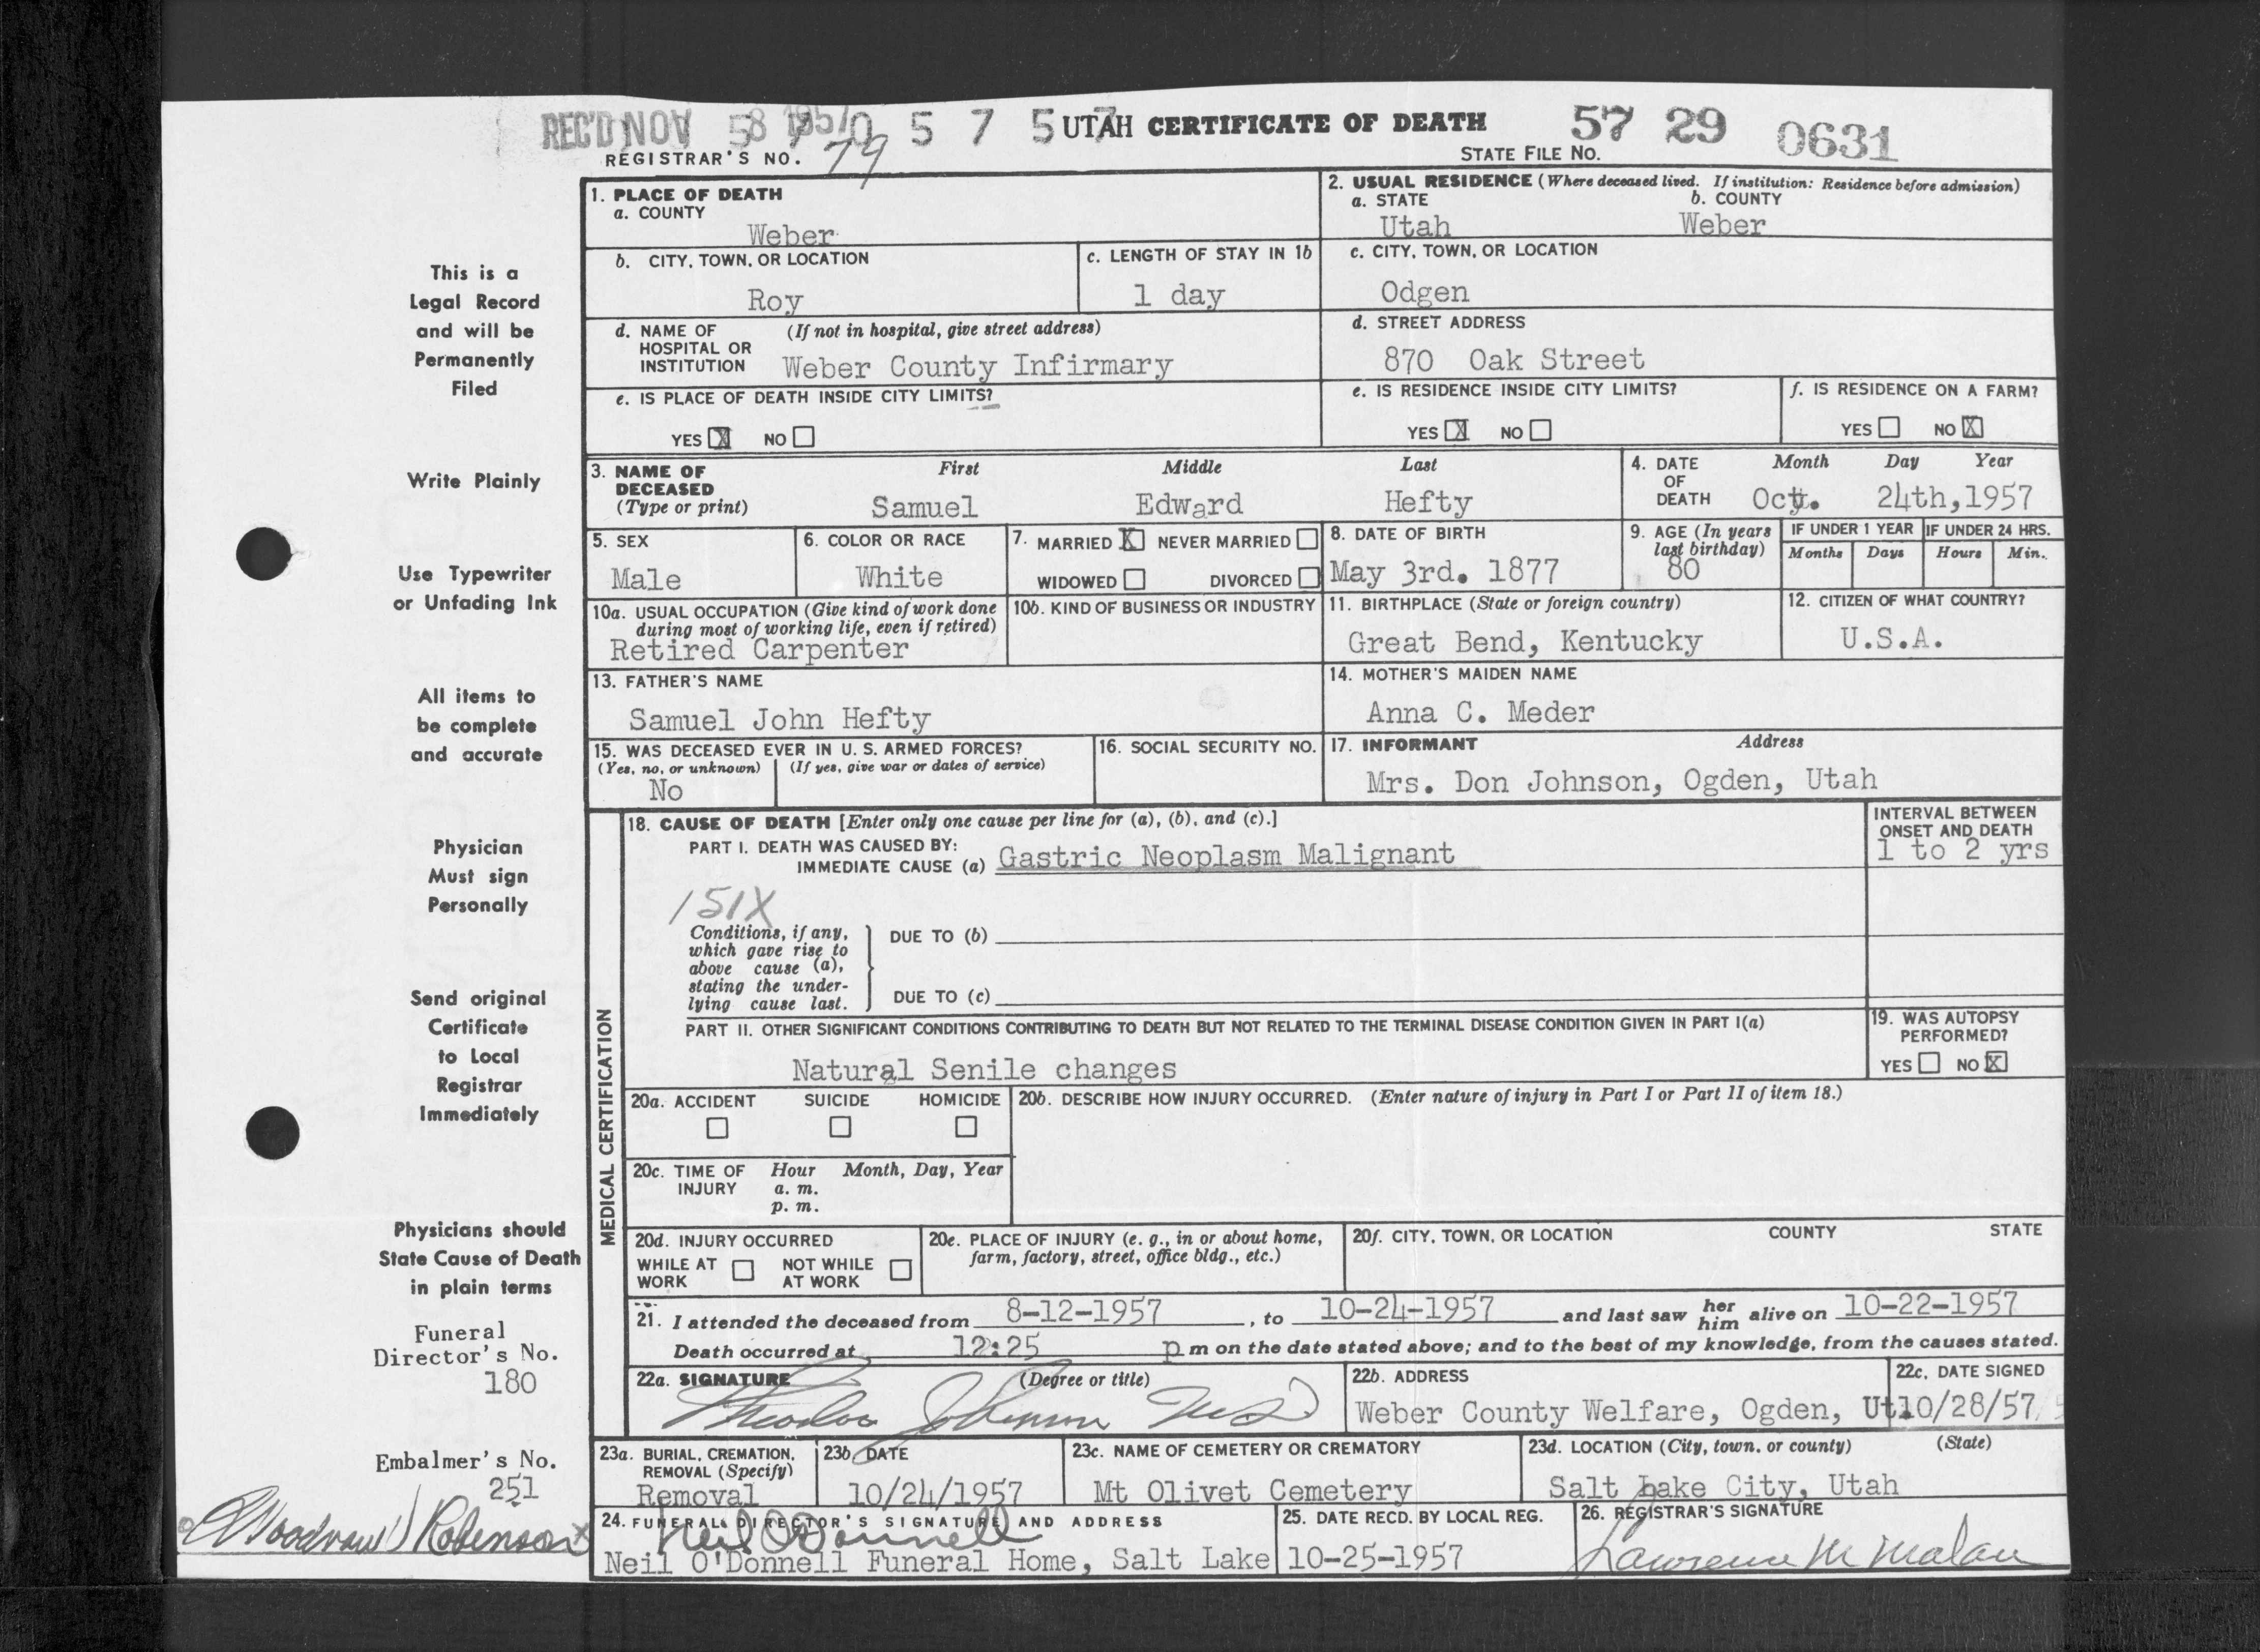 REC'D NOV 8 1957 UTAH CERTIFICATE OF DEATH 57 29 0631
REGISTRAR'S NO. 79 STATE FILE NO.
1. PLACE OF DEATH
a. COUNTY
Weber
2. USUAL RESIDENCE (Where deceased lived. If institution: Residence before admission)
a. STATE b. COUNTY
Utah Weber
b. CITY, TOWN, OR LOCATION
Roy
c. LENGTH OF STAY IN 1b
1 day
c. CITY, TOWN, OR LOCATION
Odgen
d. NAME OF (If not in hospital, give street address)
HOSPITAL OR
INSTITUTION Weber County Infirmary
d. STREET ADDRESS
870 Oak Street
e. IS PLACE OF DEATH INSIDE CITY LIMITS?
YES X NO
e. IS RESIDENCE INSIDE CITY LIMITS?
YES X NO
f. IS RESIDENCE ON A FARM?
YES NO X
3. NAME OF First Middle Last
DECEASED
(Type or print) Samuel Edward Hefty
4. DATE Month Day Year
OF
DEATH Oct. 24th,1957
5. SEX
Male
6. COLOR OR RACE
White
7. MARRIED X NEVER MARRIED
WIDOWED DIVORCED
8. DATE OF BIRTH
May 3rd. 1877
9. AGE (In years
last birthday)
80
IF UNDER 1 YEAR
Months Days
IF UNDER 24 HRS.
Hours Min.
10a. USUAL OCCUPATION (Give kind of work done
during most of working life, even if retired)
Retired Carpenter
10b. KIND OF BUSINESS OR INDUSTRY
11. BIRTHPLACE (State or foreign country)
Great Bend, Kentucky
12. CITIZEN OF WHAT COUNTRY?
U.S.A.
13. FATHER'S NAME
Samuel John Hefty
14. MOTHER'S MAIDEN NAME
Anna C. Meder
15. WAS DECEASED EVER IN U. S. ARMED FORCES?
(Yes, no, or unknown) (If yes, give war or dates of service)
No
16. SOCIAL SECURITY NO.
17. INFORMANT Address
Mrs. Don Johnson, Ogden, Utah
MEDICAL CERTIFICATION
18. CAUSE OF DEATH [Enter only one cause per line for (a), (b), and (c).]
PART I. DEATH WAS CAUSED BY:
IMMEDIATE CAUSE (a) Gastric Neoplasm Malignant
INTERVAL BETWEEN
ONSET AND DEATH
1 to 2 yrs
151X
Conditions, if any,
which gave rise to
above cause (a),
stating the under-
lying cause last.
DUE TO (b)
DUE TO (c)
PART II. OTHER SIGNIFICANT CONDITIONS CONTRIBUTING TO DEATH BUT NOT RELATED TO THE TERMINAL DISEASE CONDITION GIVEN IN PART I(a)
Natural Senile changes
19. WAS AUTOPSY
PERFORMED?
YES NO X
20a. ACCIDENT SUICIDE HOMICIDE
20b. DESCRIBE HOW INJURY OCCURRED. (Enter nature of injury in Part I or Part II of item 18.)
20c. TIME OF Hour Month, Day, Year
INJURY a. m.
p. m.
20d. INJURY OCCURRED
WHILE AT NOT WHILE
WORK AT WORK
20e. PLACE OF INJURY (e. g., in or about home,
farm, factory, street, office bldg., etc.)
20f. CITY, TOWN, OR LOCATION COUNTY STATE
21. I attended the deceased from 8-12-1957, to 10-24-1957 and last saw her him alive on 10-22-1957
Death occurred at 12:25 p m on the date stated above; and to the best of my knowledge, from the causes stated.
22a. SIGNATURE (Degree or title)
Theodor Johnson M D
22b. ADDRESS
Weber County Welfare, Ogden, Ut.
22c. DATE SIGNED
10/28/57
23a. BURIAL, CREMATION,
REMOVAL (Specify)
Removal
23b. DATE
10/24/1957
23c. NAME OF CEMETERY OR CREMATORY
Mt Olivet Cemetery
23d. LOCATION (City, town, or county) (State)
Salt Lake City, Utah
24. FUNERAL DIRECTOR'S SIGNATURE AND ADDRESS
Neil O'Donnell
Neil O'Donnell Funeral Home, Salt Lake
25. DATE RECD. BY LOCAL REG.
10-25-1957
26. REGISTRAR'S SIGNATURE
Lawrence M Malan
This is a
Legal Record
and will be
Permanently
Filed
Write Plainly
Use Typewriter
or Unfading Ink
All items to
be complete
and accurate
Physician
Must sign
Personally
Send original
Certificate
to Local
Registrar
Immediately
Physicians should
State Cause of Death
in plain terms
Funeral
Director's No.
180
Embalmer's No.
251
Woodrow J Robinson